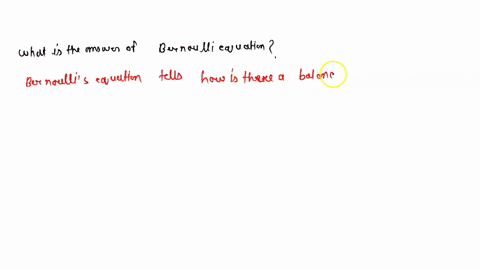 what is the answer of Bernoulli equation?
Bernoulli's equation tells how is there a balanc